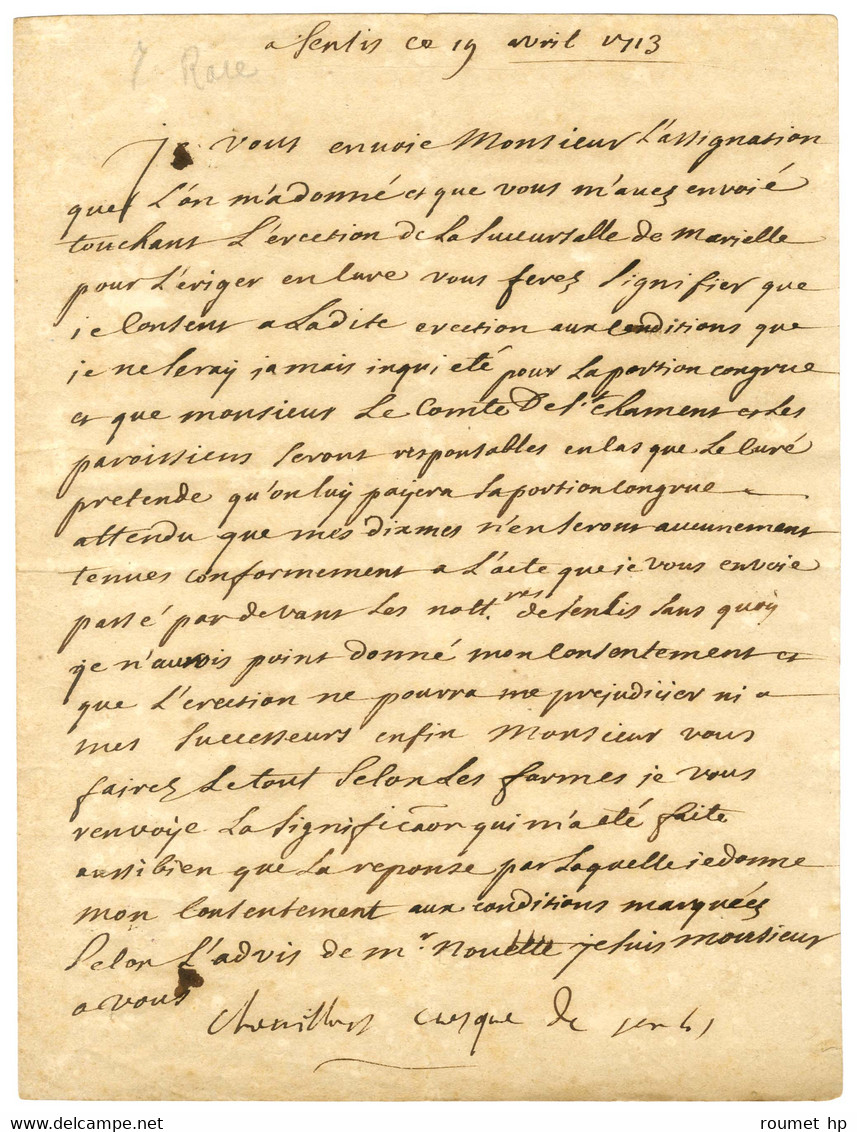 a Senlis ce 19 avril 1713
7 Rare
Je vous envoie Monsieur L'assignation
que L'on m'a donné et que vous m'avez envoié
touchant L'erection de La Succursalle de Marielle
pour L'eriger en Cure vous ferez Signifier que
je Consent a Ladite erection aux Conditions que
je ne Seray jamais inquieté pour La portion congrue
et que monsieur Le Comte De St. Chament et Les
paroissiens Seront responsables en Cas que Le Curé
pretende qu'on luy payera Sa portion Congrue
attendu que mes dixmes n'en Seront aucunement
tenues conformement a L'acte que je vous envoie
passé par devant Les nott.res de Senlis Sans quoy
je n'aurois point donné mon Consentement et
que L'erection ne pourra me prejudicier ni a
mes Successeurs enfin Monsieur vous
fairez Le tout Selon Les formes je vous
renvoye La Significãon qui m'a été faite
aussi bien que La reponse par Laquelle je donne
mon Consentement aux conditions marquées
Selon L'advis de mr. je Suis monsieur
a vous
evesque de Senlis
roumet hp